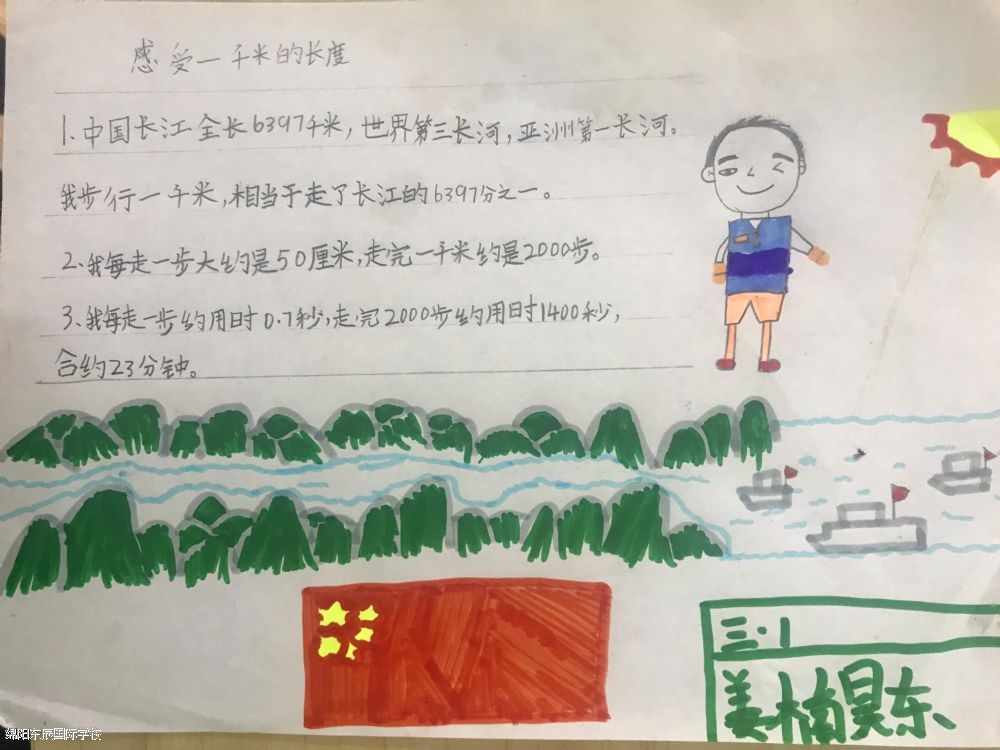 感受一千米的长度
1.中国长江全长6397千米，世界第三长河，亚洲第一长河。
我步行一千米，相当于走了长江的6397分之一。
2、我每走一步大约是50厘米，走完一千米约是2000步。
3、我每走一步约用时0.7秒，走完2000步约用时1400秒，
合约23分钟。
三·1
姜楠昊东
绵阳东辰国际学校